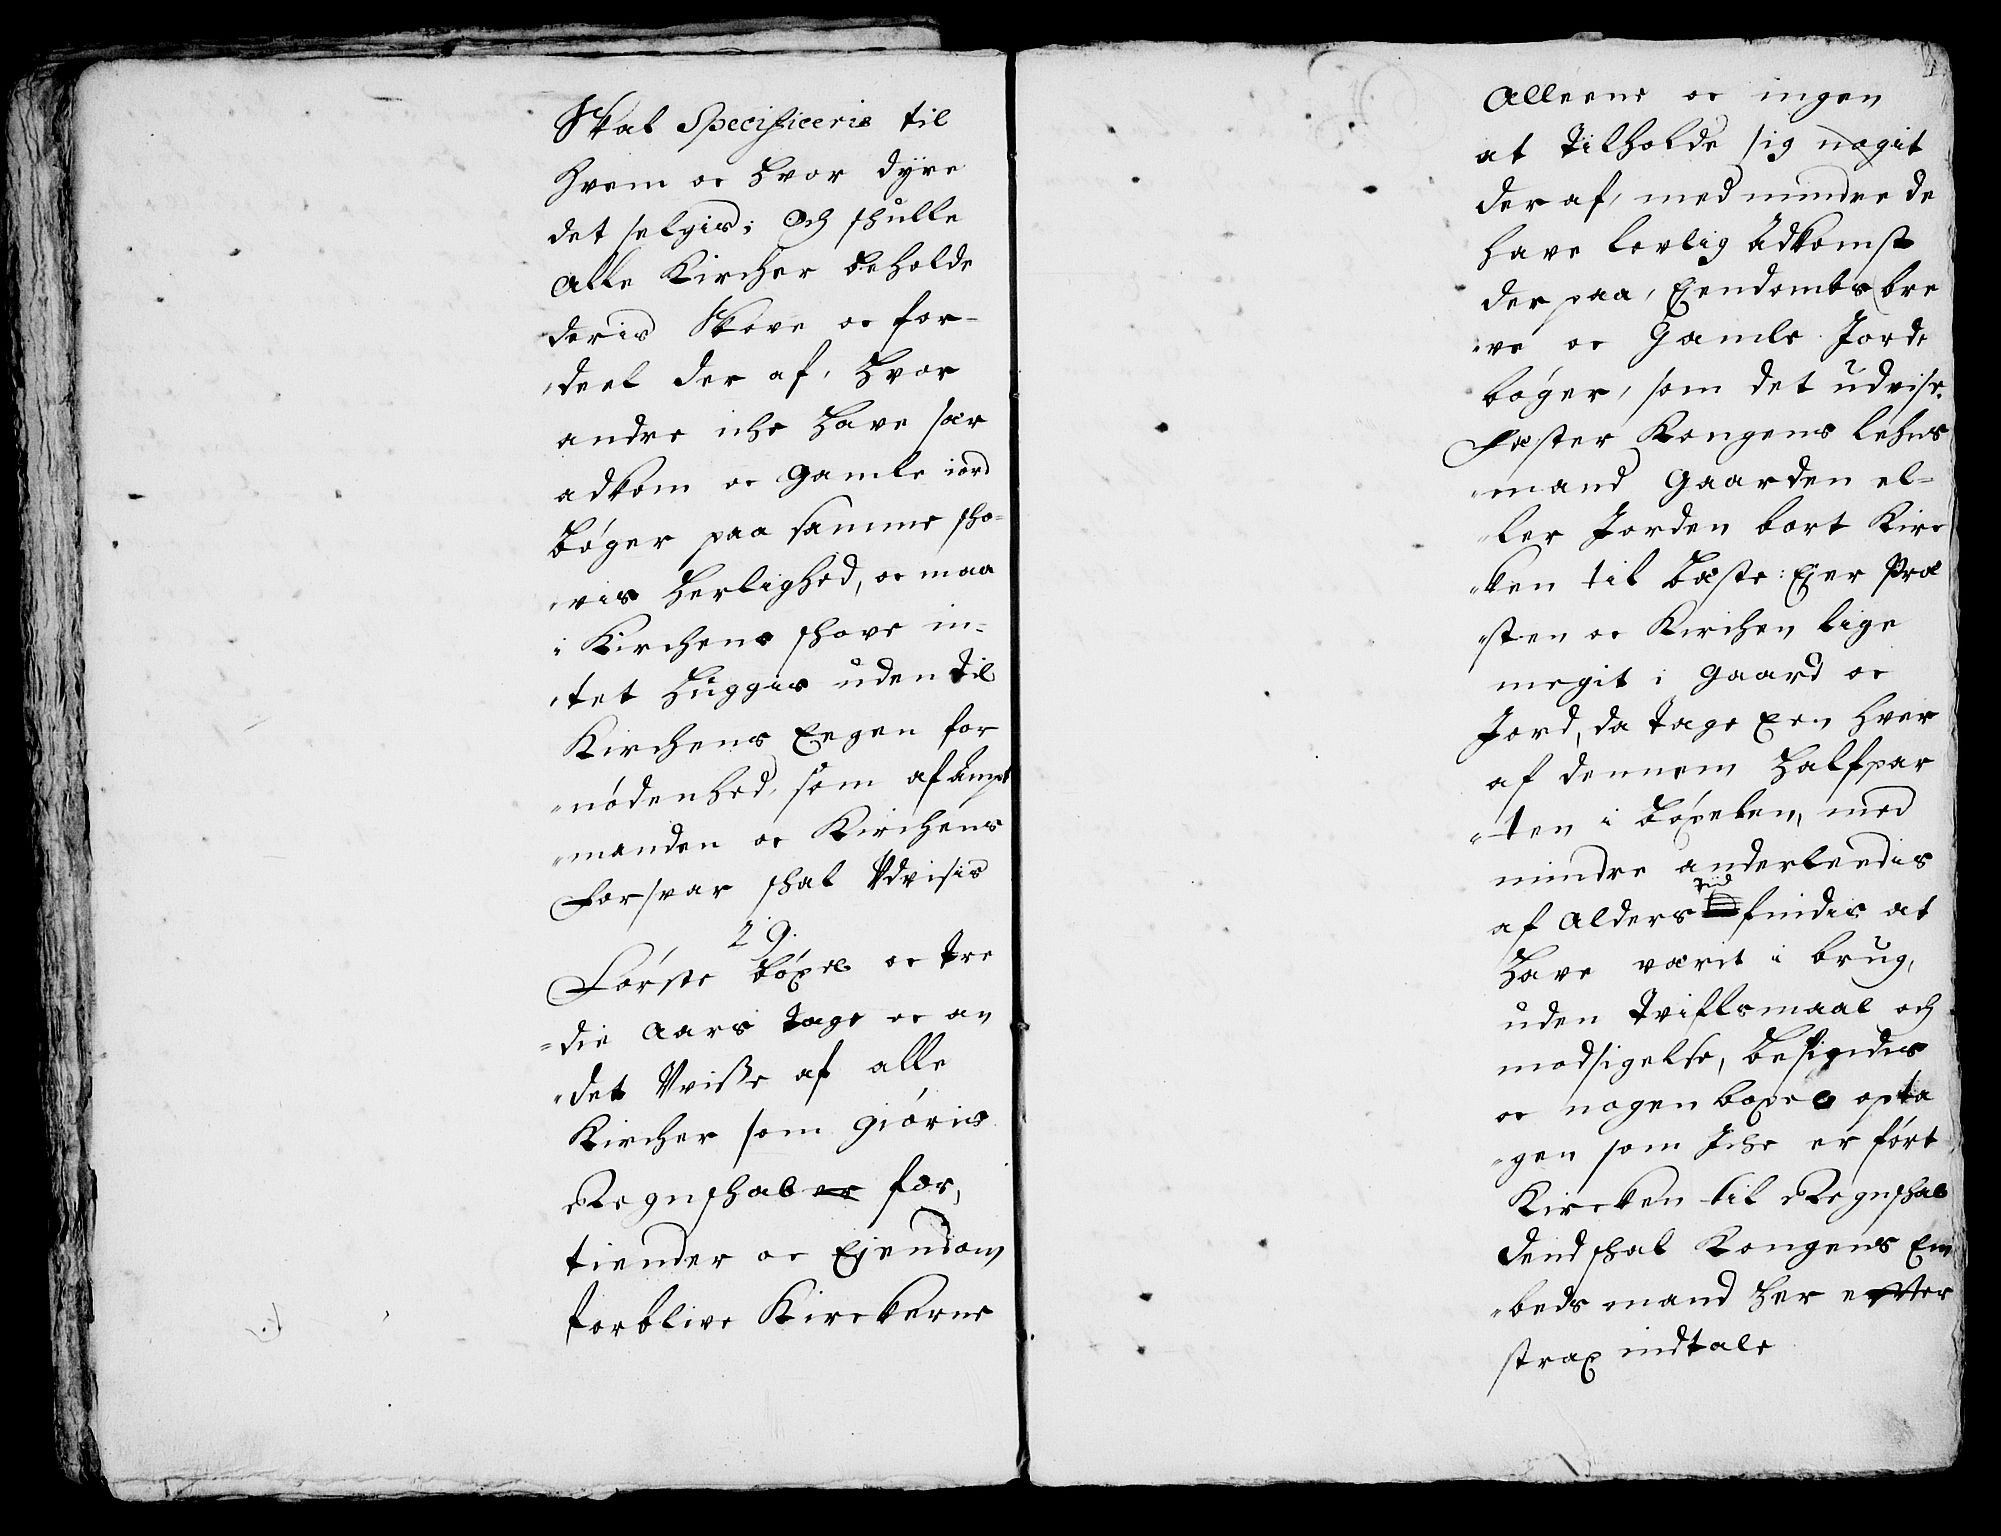 Skal Specificeris til
hvem oc hvor dyre
det selgis; Och skulle
alle Kircher beholde
deris Skove oc for-
deel der af, hvor
andre iche have sær
adkom oc gamle iord
bøger paa samme sko-
vis herlighed, oc maa
i Kirchens skove in-
tet huggis uden til
Kirchens Eegen for
nødenhed, som af Ampt
manden oc Kirchens
Forsvar skal Vdvisis
29.
Første böxel oc tre
die aars tage oc an
det Vvisse af alle
Kircher som giøris
Regnskab for,
tiender oc Ejendom
forblive Kirckerne
Alleene oc ingen
at tilholde sig nogit
der af, med mindre de
have lovlig Adkomst
der paa, Eyendombs bre
ve oc Gamle Jorde
bøger, som det udvise.
Fæster Kongens lehns
mand Gaarden el-
ler Jorden bort Kirc
ken til beste: Ejer Præ
sten oc Kirchen lige
megit i gaard oc
Jord, da tage Een hver
af dennem halfpar
ten i böxelen, med
mindre anderleedis
af Alders tid findis at
have værit i brug,
uden tvifsmaal och
modsigelse, befindis
oc nogen böxel opta
gen som Iche er ført
Kircken til Regnskab
dend skal Kongens Em
beds mand her effter
strax indtale